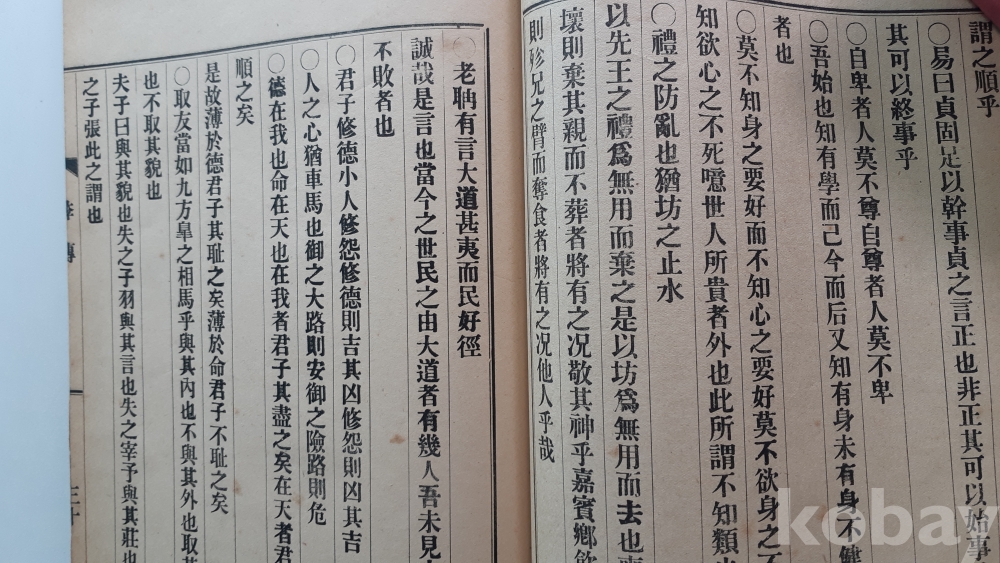 謂之順乎
○易曰貞固足以幹事貞之言正也非正其可以始事
其可以終事乎
○自卑者人莫不尊自尊者人莫不卑
○吾始也知有學而已今而后又知有身未有身不健
者也
○莫不知身之要好而不知心之要好莫不欲身之不
知欲心之不死噫世人所貴者外也此所謂不知類也
○禮之防亂也猶坊之止水
以先王之禮爲無用而棄之是以坊爲無用而去也喪
壞則棄其親而不葬者將有之况敬其神乎嘉賓鄉飮
則紾兄之臂而奪食者將有之况他人乎哉
○老聃有言大道甚夷而民好徑
誠哉是言也當今之世民之由大道者有幾人吾未見
不敗者也
○君子修德小人修怨修德則吉其凶修怨則凶其吉
○人之心猶車馬也御之大路則安御之險路則危
○德在我也命在天也在我者君子其盡之矣在天者君
順之矣
是故薄於德君子其耻之矣薄於命君子不耻之矣
○取友當如九方臯之相馬乎與其內也不與其外也取其
也不取其貌也
夫子曰與其貌也失之子羽與其言也失之宰予與其莊也
之子張此之謂也
傳
三十
kobay